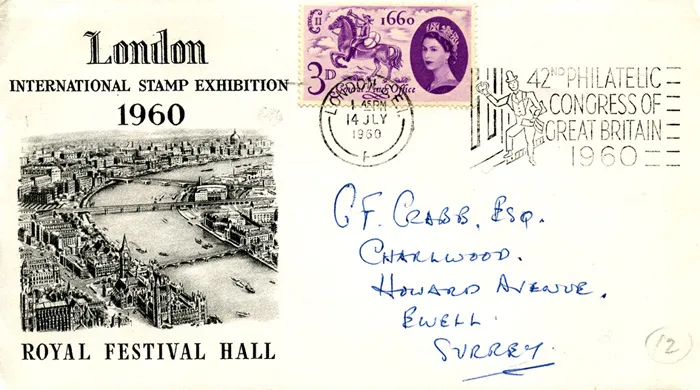 London
INTERNATIONAL STAMP EXHIBITION
1960
ROYAL FESTIVAL HALL
1660
3D
General Letter Office
LONDON
1 45PM
14 JLY
1960
F
42ND PHILATELIC
CONGRESS OF
GREAT BRITAIN
1960
C.F. CRABB, ESQ.
CHARLWOOD.
HOWARD AVENUE.
EWELL.
SURREY.
12